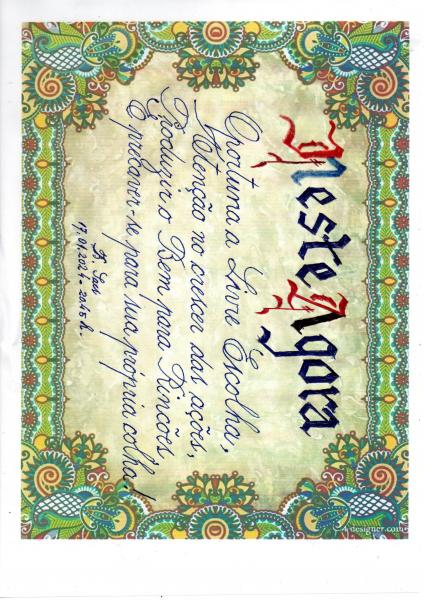 Neste Agora
Oportuna a Livre Escolha,
Atenção no crescer das ações,
Produzir o Bem para Rincões
E prover-se para sua própria colha!
17.01.2024 - 20:45 h.
4-designer.com